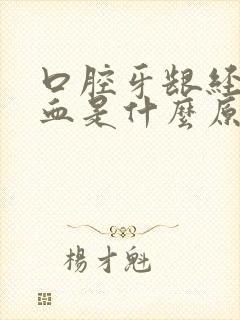 口腔牙龈经
血是什麼原
楊才魁